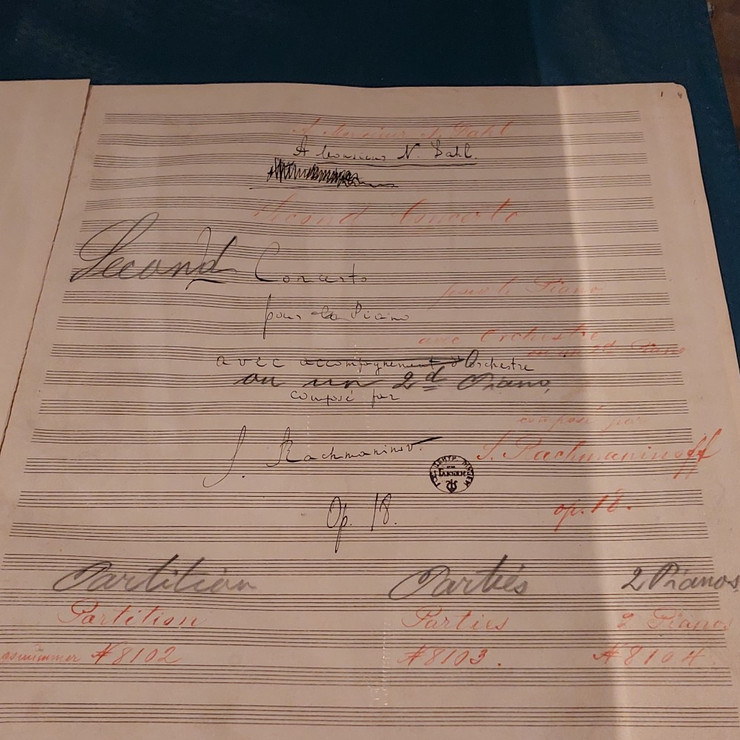 A Monsieur N. Dahl
A Monsieur N. Dahl.
Second Concerto
Second Concerto
pour le Piano
pour le Piano
avec Orchestre
avec accompagnement d'Orchestre
ou un 2d Piano
ou un 2d Piano,
composé par
composé par
S. Rachmaninow.
S. Rachmaninoff
Op. 18.
op. 18.
Partition Parties 2 Pianos
Partition Parties 2 Pianos
#8102 #8103. #8104.